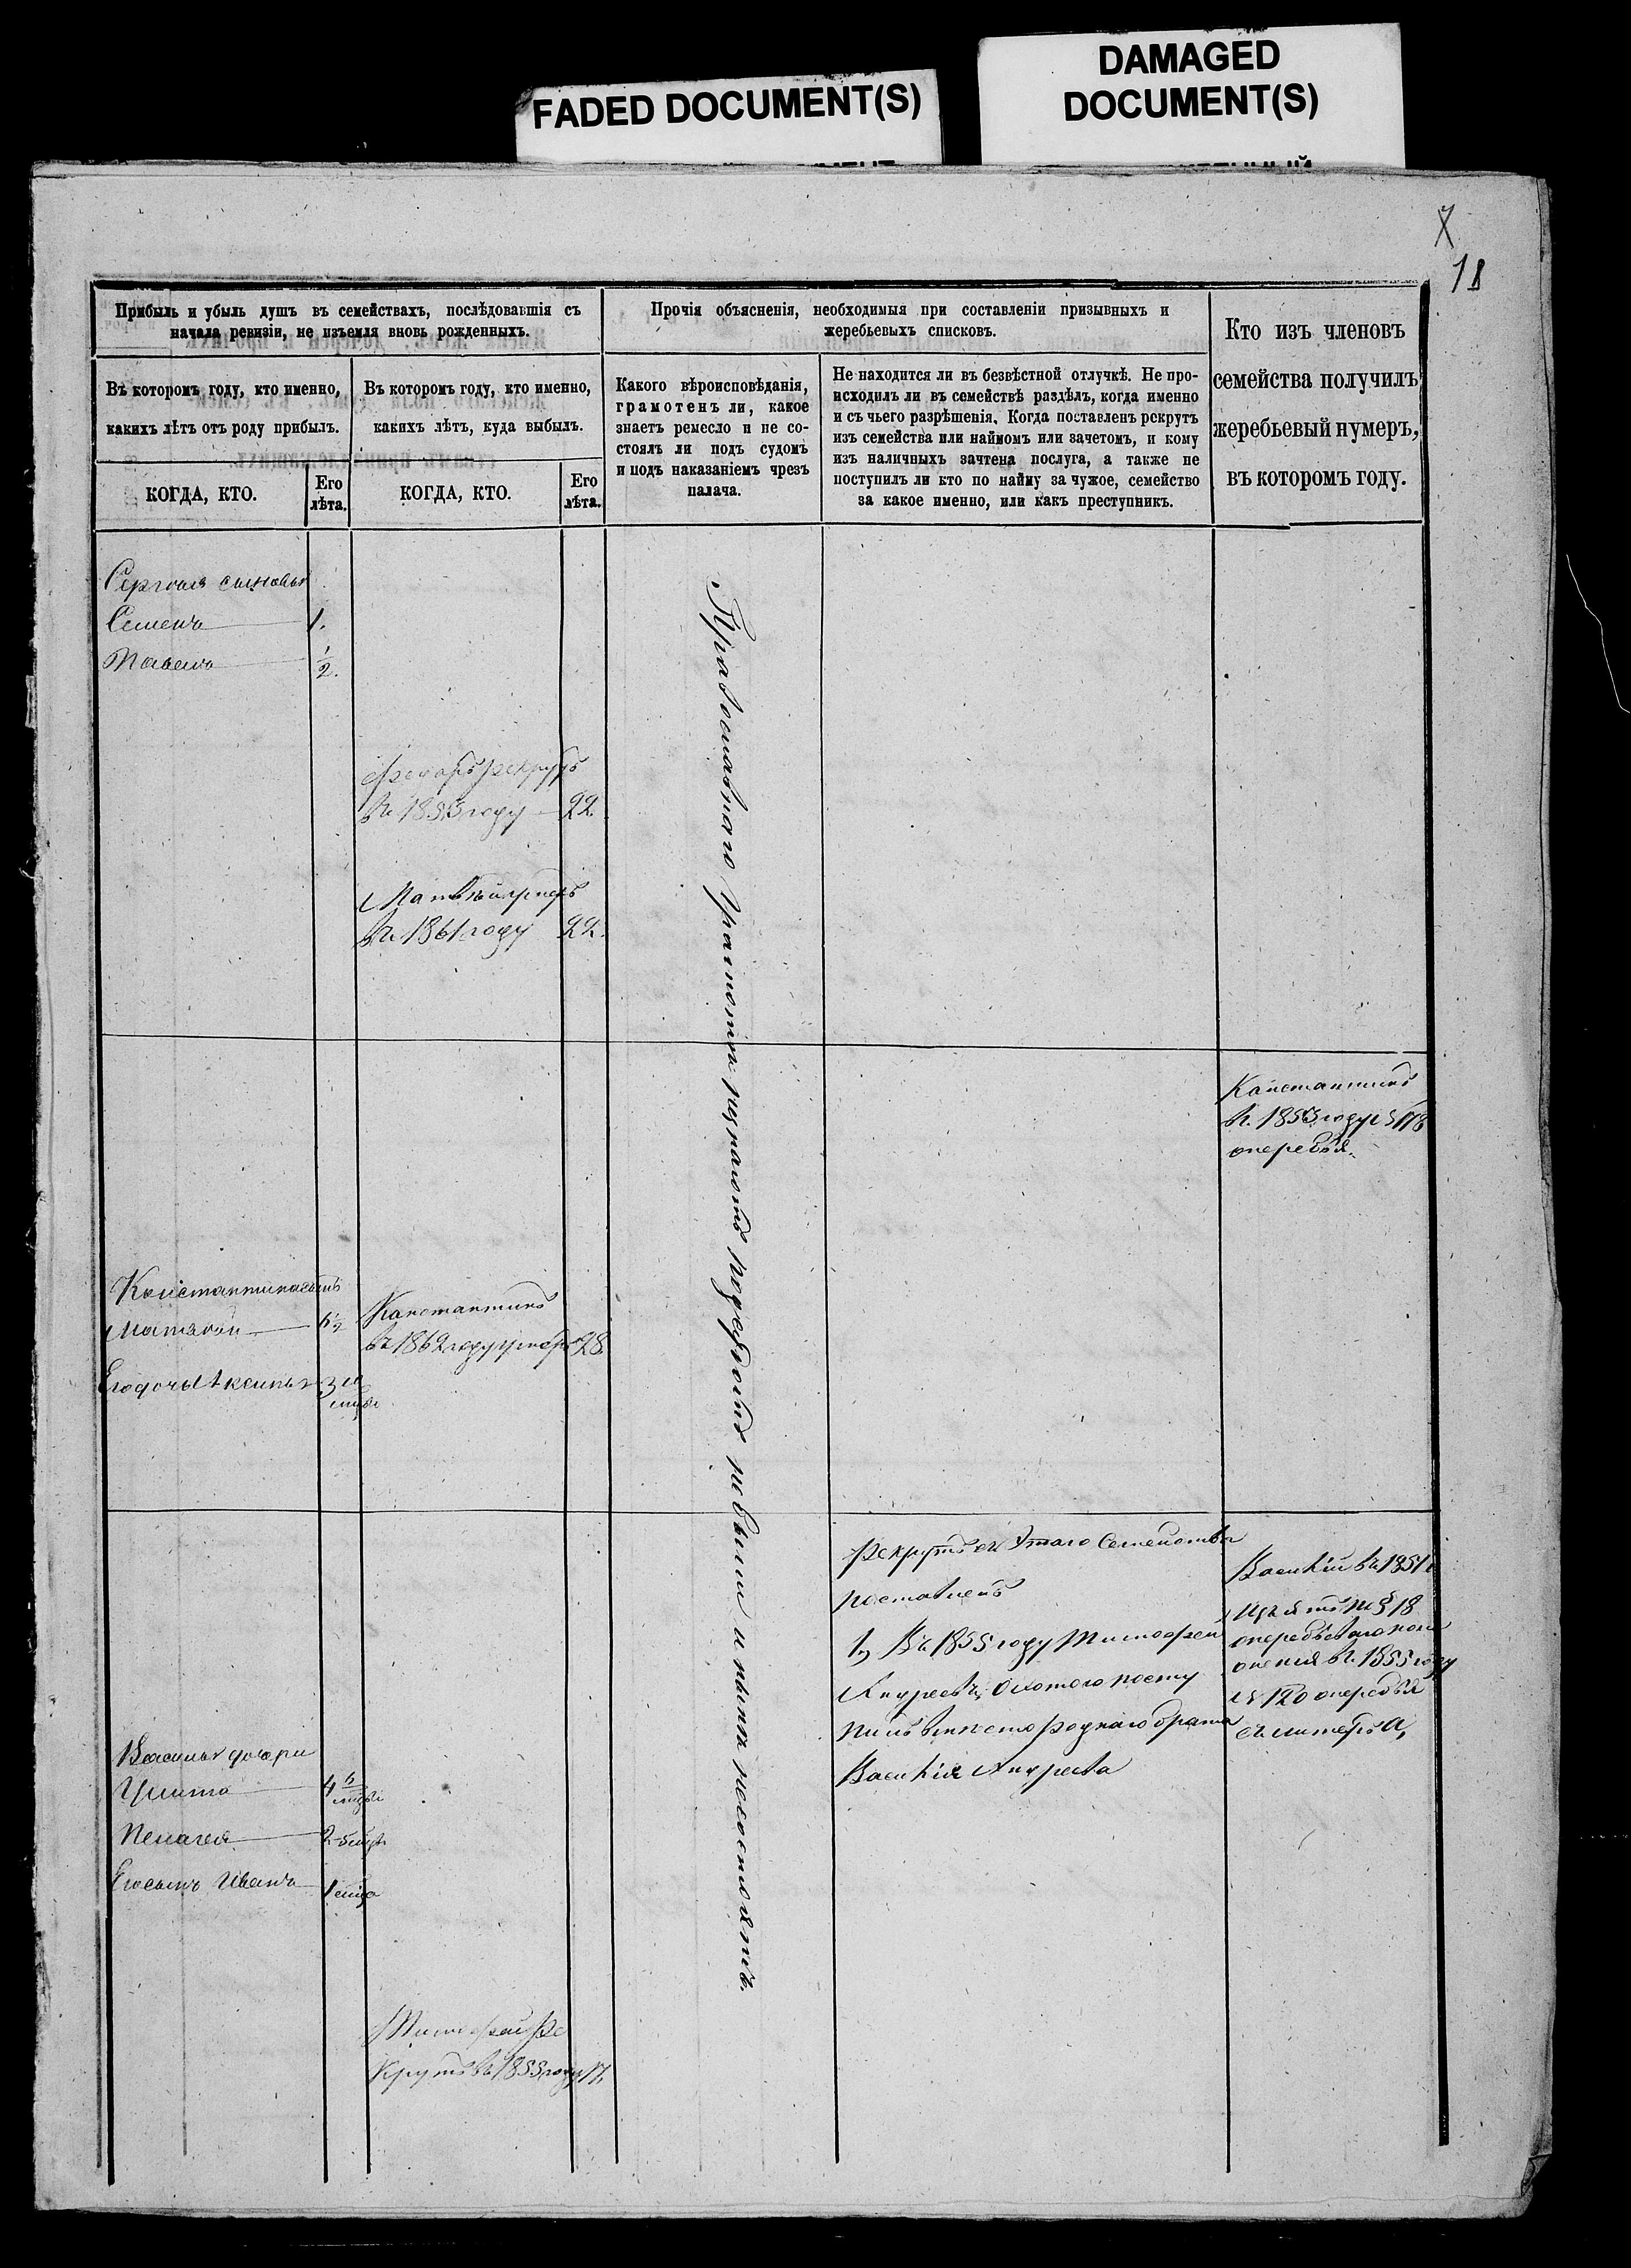 FADED DOCUMENT(S)
DAMAGED
DOCUMENT(S)
7
18
Прибыль и убыль душъ въ семействахъ, послѣдовавшія съ
начала ревизіи, не изъемля вновь рожденныхъ.
Прочія объясненія, необходимыя при составленіи призывныхъ и
жеребьевыхъ списковъ.
Кто изъ членовъ
семейства получилъ
жеребьевый нумеръ,
въ которомъ году.
Въ которомъ году, кто именно,
какихъ лѣтъ отъ роду прибылъ.
Въ которомъ году, кто именно,
какихъ лѣтъ, куда выбылъ.
Какого вѣроисповѣданія,
грамотенъ ли, какое
знаетъ ремесло и не со-
стоялъ ли подъ судомъ
и подъ наказаніемъ чрезъ
палача.
Не находится ли въ безвѣстной отлучкѣ. Не про-
исходилъ ли въ семействѣ раздѣлъ, когда именно
и съ чьего разрѣшенія. Когда поставленъ рекрутъ
изъ семейства или наймомъ или зачетомъ, и кому
изъ наличныхъ зачтена послуга, а также не
поступилъ ли кто по найму за чужое, семейство
за какое именно, или какъ преступникъ.
КОГДА, КТО.
Его
лѣта.
КОГДА, КТО.
Его
лѣта.
Сергѣя сыновья
Семенъ 1.
Павелъ 1/2.
рекрутъ
въ 1853 году 22.
Матвѣй умеръ
въ 1861 году 22.
Православнаго, грамоти не знаютъ подсудомъ небыли и нынѣ несостоятъ.
Константинъ
въ 1853 году 178
очередья.
Константина сынъ
Матвѣй
Его дочь Аксинья 3
Константинъ
въ 1862 году умеръ 28.
Рекрутъ съ Этаго Семейства
поставленъ
1, Въ 1855 году Тимофей
Андреевъ, Охотою посту
пилъ вместо роднаго брата
Василія Андреева
Василій въ 1851
№ 18
въ 1855 году
№ 120 очередья
съ литерѣ А,
Василья дочери
Улита 4
Пелагея 2
Его сынъ Иванъ 1
Тимофей Ре
крутъ въ 1855 году 17,